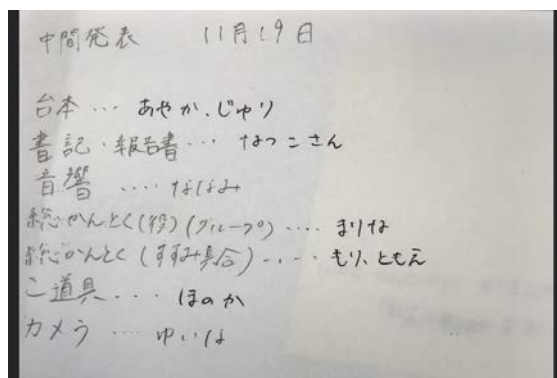 中間発表 11月19日
台本… あやか、じゅり
書記・報告書… なつこさん
音響 …. ななみ
総かんとく(役)(グループ) …. まりな
総かんとく(すすみ具合) …. もり、ともえ
こ道具… ほのか
カメラ …. ゆいな